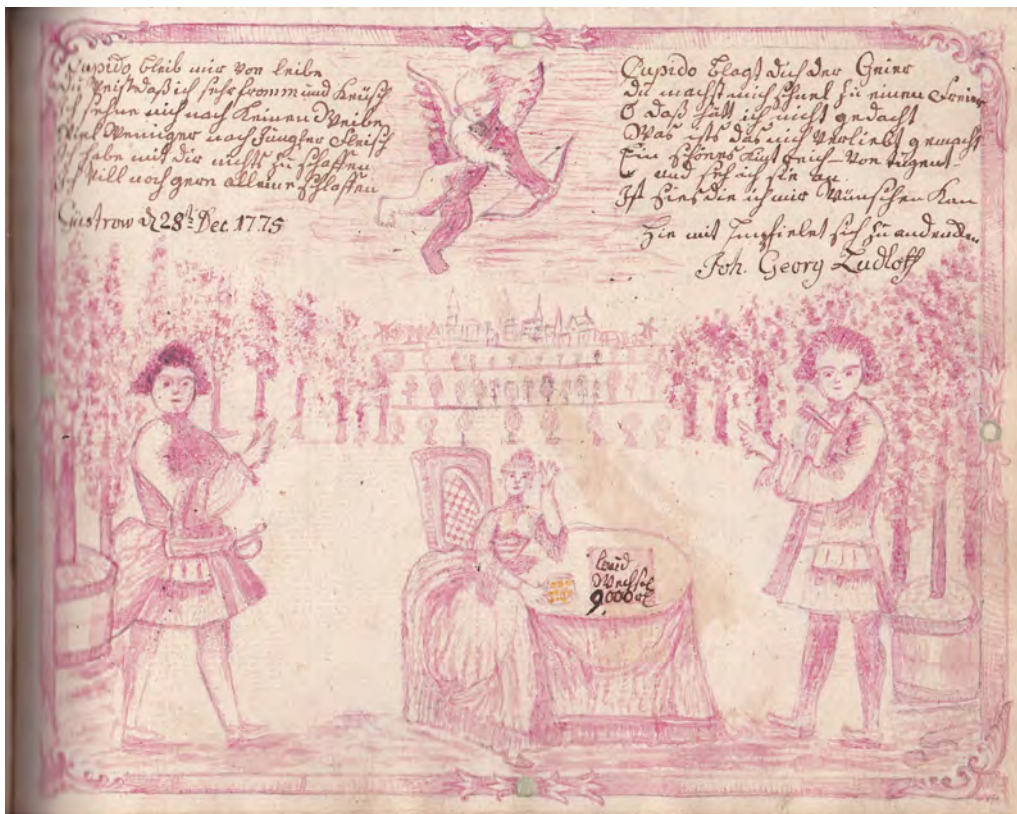 Cupido bleib mir vom leibe
Du weist daß ich sehr fromm und Keüsch
Ich sehne mich nach Keinen Weibe
Viel Weniger nach Jungfer Fleisch
Ich habe mit dir nichts zu schaffen
Ich will noch gern alleine schlaffen
Güstrow d 28t Dec 1775
Cupido Plagt dich der Geier
Du machst mich schnel zu einen Freier
O daß hätt ich nicht gedacht
Was ists das mich verliebt gemacht
Ein schönes Kint reich von tugent
und seh ich sie an
Ist Dies die ich mir Wünschen Kan
Hie mit sich zu andencken
Joh. Georg Ludloff
Wechsel
9000 rl